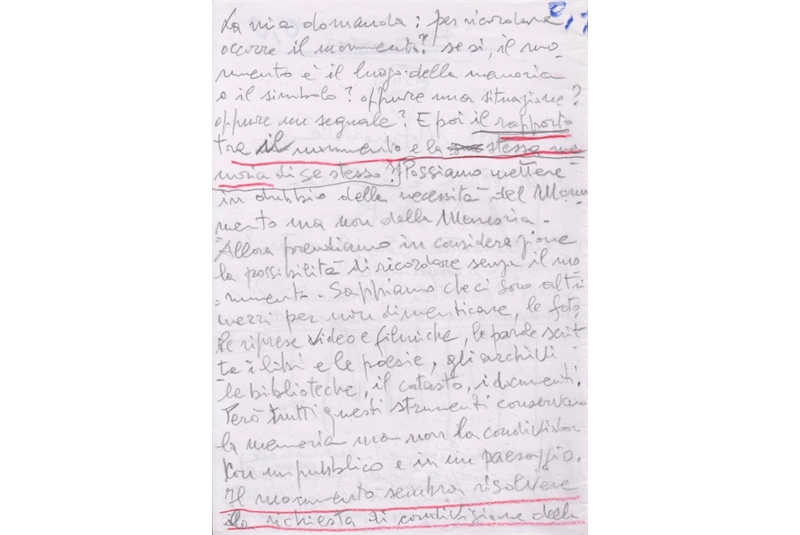 La mia domanda: per ricordare
occorre il monumento? se si, il mo-
numento è il luogo della memoria
o il simbolo? oppure una situazione?
oppure un segnale? E poi il rapporto
tra il monumento e la stessa me
moria di se stesso? Possiamo mettere
in dubbio della necessità del Monu
mento ma non della Memoria -
Allora prendiamo in considerazione
la possibilità di ricordare senza il mo
-numento. Sappiamo che ci sono altri
mezzi per non dimenticare, le foto,
le riprese video e filmiche, le parole scrit
te i libri e le poesie, gli archivi
le biblioteche, il catasto, i documenti.
Però tutti questi strumenti conservano
la memoria ma non la condividon
con un pubblico e in un paesaggio.
Il monumento sembra risolvere
la richiesta di condivizione della